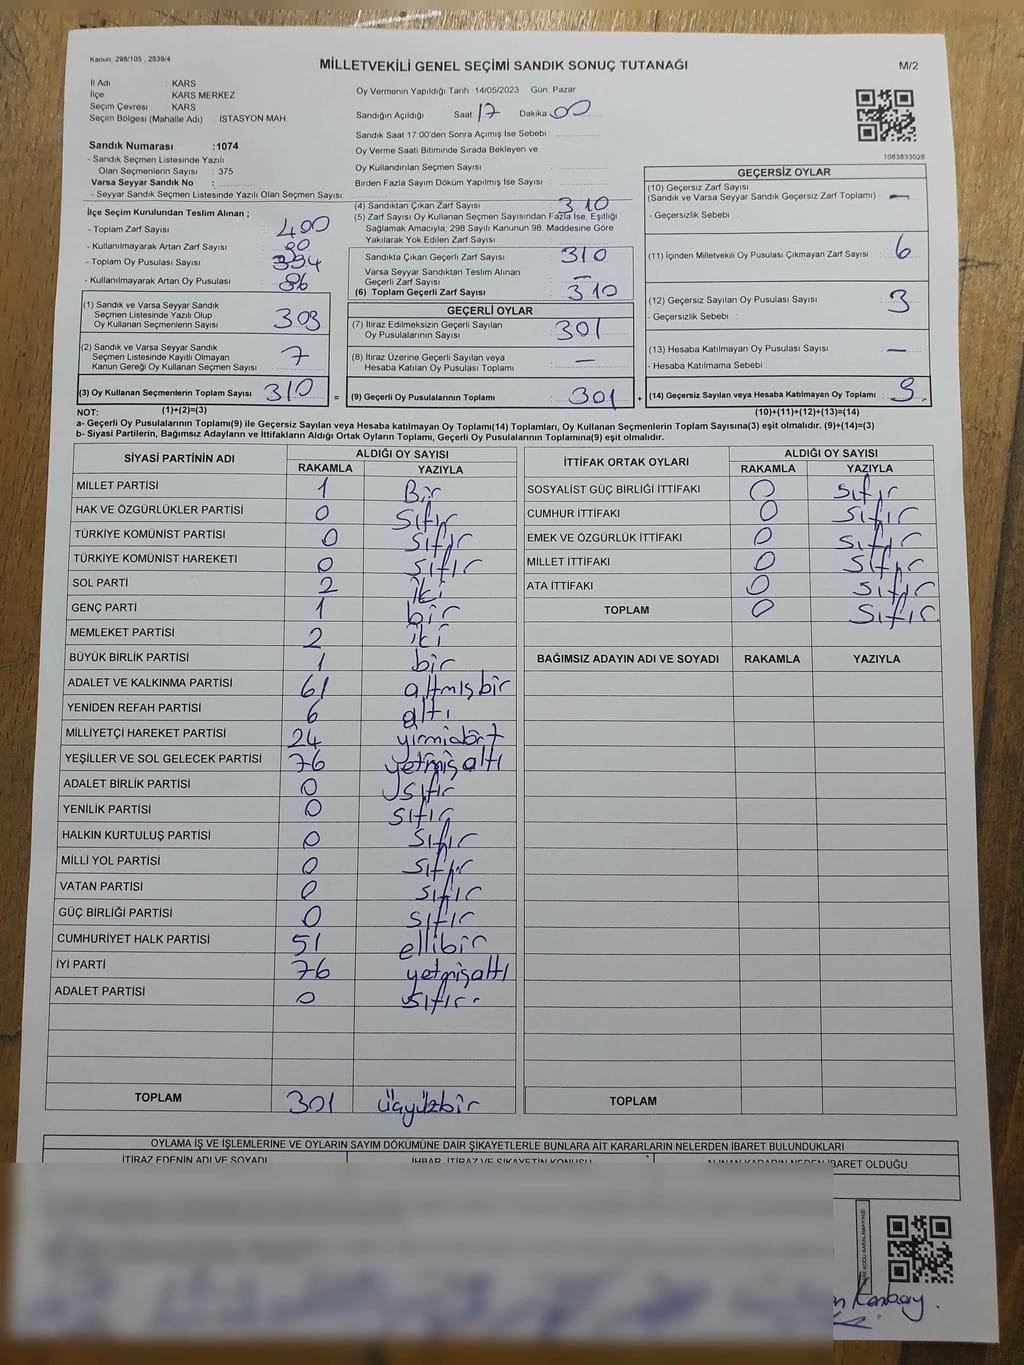 Kanun, 298/105 , 2839/4
MİLLETVEKİLİ GENEL SEÇİMİ SANDIK SONUÇ TUTANAĞI
M/2
İl Adı : KARS
İlçe : KARS MERKEZ
Seçim Çevresi : KARS
Seçim Bölgesi (Mahalle Adı) : İSTASYON MAH.
Sandık Numarası :1074
- Sandık Seçmen Listesinde Yazılı
Olan Seçmenlerin Sayısı : 375
Varsa Seyyar Sandık No :
- Seyyar Sandık Seçmen Listesinde Yazılı Olan Seçmen Sayısı:
Oy Vermenin Yapıldığı Tarih :14/05/2023 Gün: Pazar
Sandığın Açıldığı Saat 17 Dakika 00
Sandık Saat 17:00'den Sonra Açımış İse Sebebi :
Oy Verme Saati Bitiminde Sırada Bekleyen ve
Oy Kullandırılan Seçmen Sayısı :
Birden Fazla Sayım Döküm Yapılmış İse Sayısı :
1083833028
İlçe Seçim Kurulundan Teslim Alınan ;
- Toplam Zarf Sayısı : 400
- Kullanılmayarak Artan Zarf Sayısı : 90
- Toplam Oy Pusulası Sayısı : 394
- Kullanılmayarak Artan Oy Pusulası : 86
(1) Sandık ve Varsa Seyyar Sandık
Seçmen Listesinde Yazılı Olup
Oy Kullanan Seçmenlerin Sayısı : 303
(2) Sandık ve Varsa Seyyar Sandık
Seçmen Listesinde Kayıtlı Olmayan
Kanun Gereği Oy Kullanan Seçmen Sayısı : 7
(3) Oy Kullanan Seçmenlerin Toplam Sayısı 310 =
(1)+(2)=(3)
(4) Sandıktan Çıkan Zarf Sayısı : 310
(5) Zarf Sayısı Oy Kullanan Seçmen Sayısından Fazla İse, Eşitliği
Sağlamak Amacıyla, 298 Sayılı Kanunun 98. Maddesine Göre
Yakılarak Yok Edilen Zarf Sayısı :
Sandıkta Çıkan Geçerli Zarf Sayısı : 310
Varsa Seyyar Sandıktan Teslim Alınan
Geçerli Zarf Sayısı : —
(6) Toplam Geçerli Zarf Sayısı : 310
GEÇERLİ OYLAR
(7) İtiraz Edilmeksizin Geçerli Sayılan
Oy Pusulalarının Sayısı : 301
(8) İtiraz Üzerine Geçerli Sayılan veya
Hesaba Katılan Oy Pusulası Toplamı : —
(9) Geçerli Oy Pusulalarının Toplamı : 301 +
GEÇERSİZ OYLAR
(10) Geçersiz Zarf Sayısı
(Sandık ve Varsa Seyyar Sandık Geçersiz Zarf Toplamı) : —
- Geçersizlik Sebebi :
(11) İçinden Milletvekili Oy Pusulası Çıkmayan Zarf Sayısı : 6
(12) Geçersiz Sayılan Oy Pusulası Sayısı : 3
- Geçersizlik Sebebi :
(13) Hesaba Katılmayan Oy Pusulası Sayısı : —
- Hesaba Katılmama Sebebi :
(14) Geçersiz Sayılan veya Hesaba Katılmayan Oy Toplamı : 9
(10)+(11)+(12)+(13)=(14)
NOT:
a- Geçerli Oy Pusulalarının Toplamı(9) ile Geçersiz Sayılan veya Hesaba katılmayan Oy Toplamı(14) Toplamları, Oy Kullanan Seçmenlerin Toplam Sayısına(3) eşit olmalıdır. (9)+(14)=(3)
b- Siyasi Partilerin, Bağımsız Adayların ve İttifakların Aldığı Ortak Oyların Toplamı, Geçerli Oy Pusulalarının Toplamına(9) eşit olmalıdır.
SİYASİ PARTİNİN ADI ALDIĞI OY SAYISI
RAKAMLA YAZIYLA
MİLLET PARTİSİ 1 Bir
HAK VE ÖZGÜRLÜKLER PARTİSİ 0 sıfır
TÜRKİYE KOMÜNİST PARTİSİ 0 sıfır
TÜRKİYE KOMÜNİST HAREKETİ 0 sıfır
SOL PARTİ 2 iki
GENÇ PARTİ 1 bir
MEMLEKET PARTİSİ 2 iki
BÜYÜK BİRLİK PARTİSİ 1 bir
ADALET VE KALKINMA PARTİSİ 61 altmışbir
YENİDEN REFAH PARTİSİ 6 altı
MİLLİYETÇİ HAREKET PARTİSİ 24 yirmidört
YEŞİLLER VE SOL GELECEK PARTİSİ 76 yetmişaltı
ADALET BİRLİK PARTİSİ 0 sıfır
YENİLİK PARTİSİ 0 sıfır
HALKIN KURTULUŞ PARTİSİ 0 sıfır
MİLLİ YOL PARTİSİ 0 sıfır
VATAN PARTİSİ 0 sıfır
GÜÇ BİRLİĞİ PARTİSİ 0 sıfır
CUMHURİYET HALK PARTİSİ 51 ellibir
İYİ PARTİ 76 yetmişaltı
ADALET PARTİSİ 0 sıfır
TOPLAM 301 üçyüzbir
İTTİFAK ORTAK OYLARI ALDIĞI OY SAYISI
RAKAMLA YAZIYLA
SOSYALİST GÜÇ BİRLİĞİ İTTİFAKI 0 sıfır
CUMHUR İTTİFAKI 0 sıfır
EMEK VE ÖZGÜRLÜK İTTİFAKI 0 sıfır
MİLLET İTTİFAKI 0 sıfır
ATA İTTİFAKI 0 sıfır
TOPLAM 0 sıfır
BAĞIMSIZ ADAYIN ADI VE SOYADI RAKAMLA YAZIYLA
TOPLAM
OYLAMA İŞ VE İŞLEMLERİNE VE OYLARIN SAYIM DÖKÜMÜNE DAİR ŞİKAYETLERLE BUNLARA AİT KARARLARIN NELERDEN İBARET BULUNDUKLARI
İTİRAZ EDENİN ADI VE SOYADI İHBAR, İTİRAZ VE ŞİKAYETİN KONUSU ALINAN KARARIN NEDEN İBARET OLDUĞU